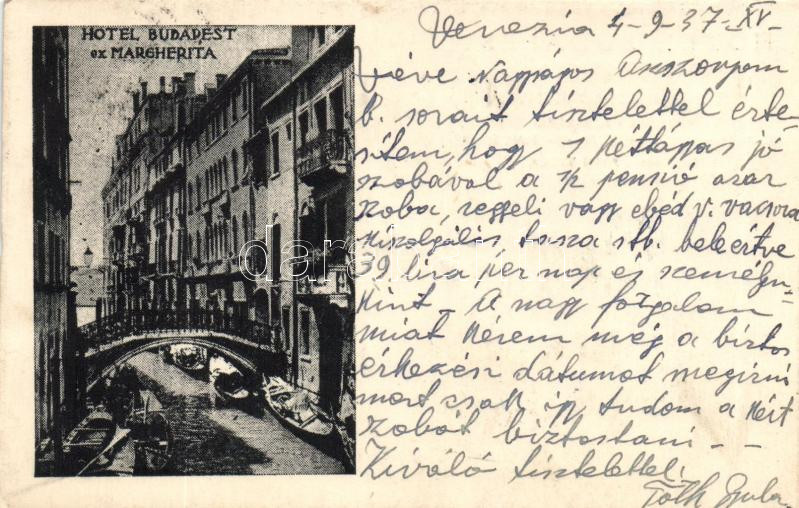 HOTEL BUDAPEST
ex MARGHERITA
Venezia 4-9-37-XV-
Véve Nagyságos Asszonyom
b. sorait tisztelettel érte-
sítem, hogy 1 kétágyas jó
szobával a ½ pensió azaz
szoba, reggeli vagy ebéd v. vacsora
kiszolgálás taxa stb. beleértve
39 lira per nap és személyen-
kint - A nagy forgalom
miatt kérem még a biztos
érkezési dátumot megírni
mert csak így tudom a kért
szobát biztosítani - -
Kiváló tisztelettel:
Tóth Gyula
darabanth.com